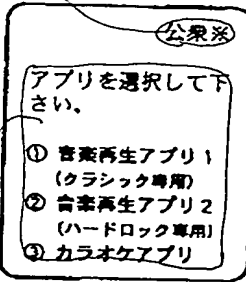 公衆※
アプリを選択して下
さい。
① 音楽再生アプリ1
(クラシック専用)
② 音楽再生アプリ2
(ハードロック専用)
③ カラオケアプリ